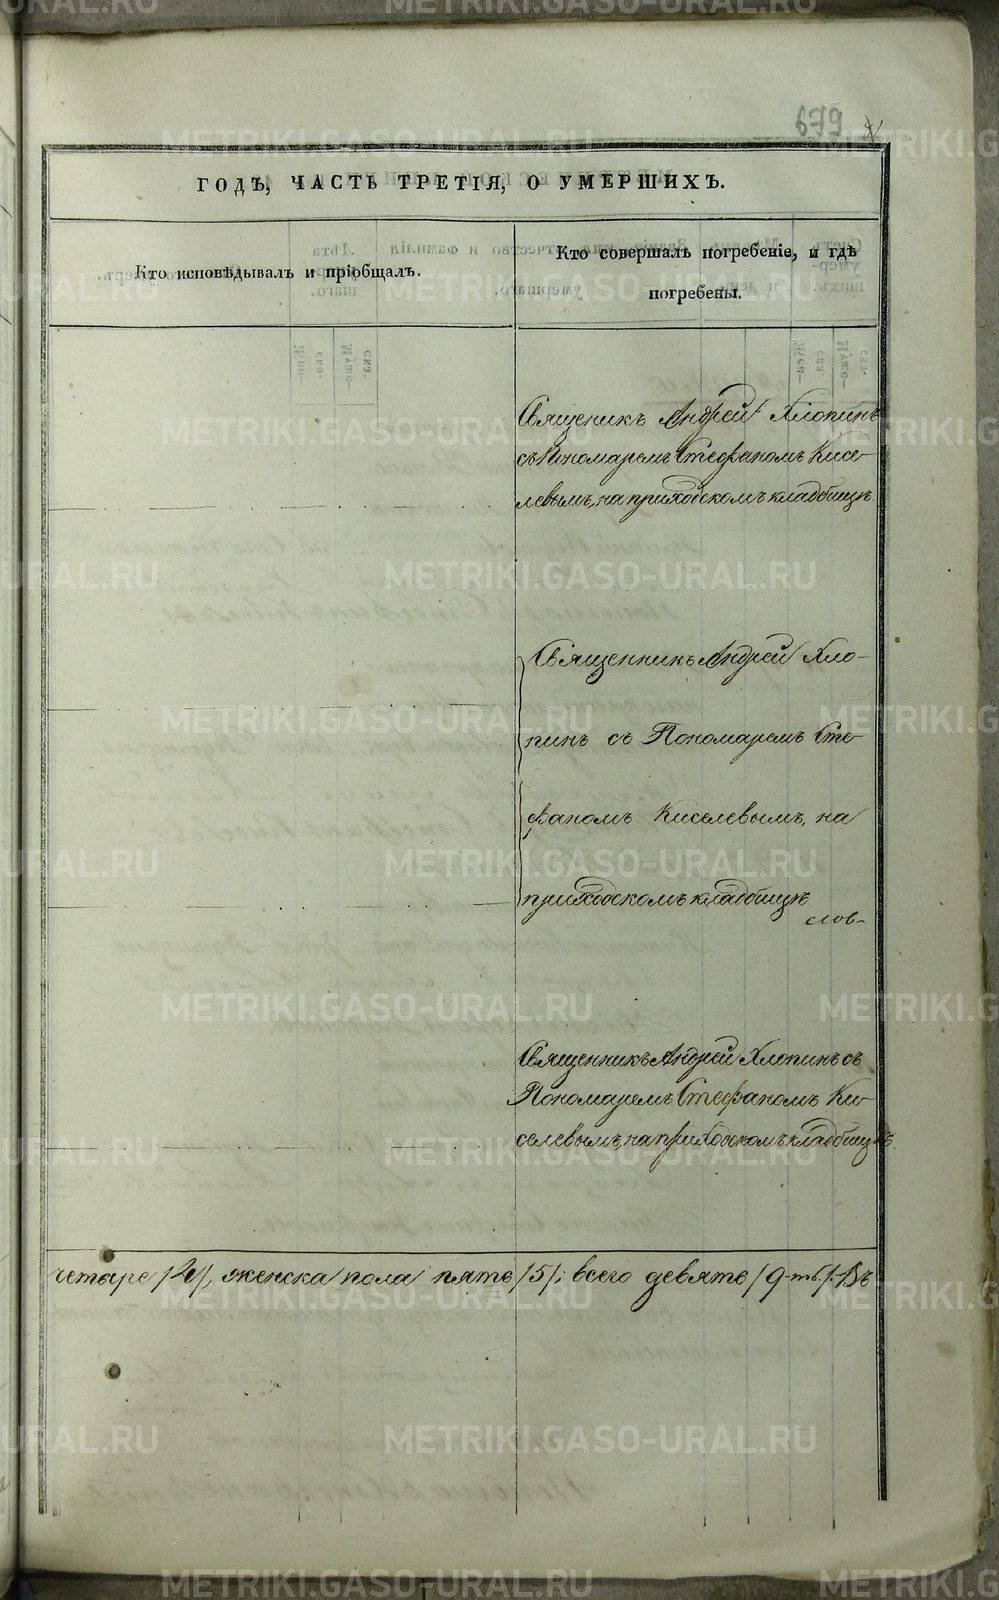 679
ГОДЪ, ЧАСТЬ ТРЕТІЯ, О УМЕРШИХЪ.
Кто исповѣдывалъ и пріобщалъ.
Кто совершалъ погребеніе, и гдѣ
погребены.
Священикъ Андрей Хлопинъ
съ Пономаремъ Стефаномъ Кисе-
левымъ, на приходскомъ кладбищѣ
Священникъ Андрей Хло-
пинъ съ Пономаремъ Сте-
фаномъ Киселевымъ, на
приходскомъ кладбищѣ
Священникъ Андрей Хлопинъ съ
Пономаремъ Стефаномъ Ки-
селевымъ, на приходскомъ кладбищѣ
четыре /4/, женска пола пять /5/, всего девять /9-ть/. Въ
METRIKI.GASO-URAL.RU